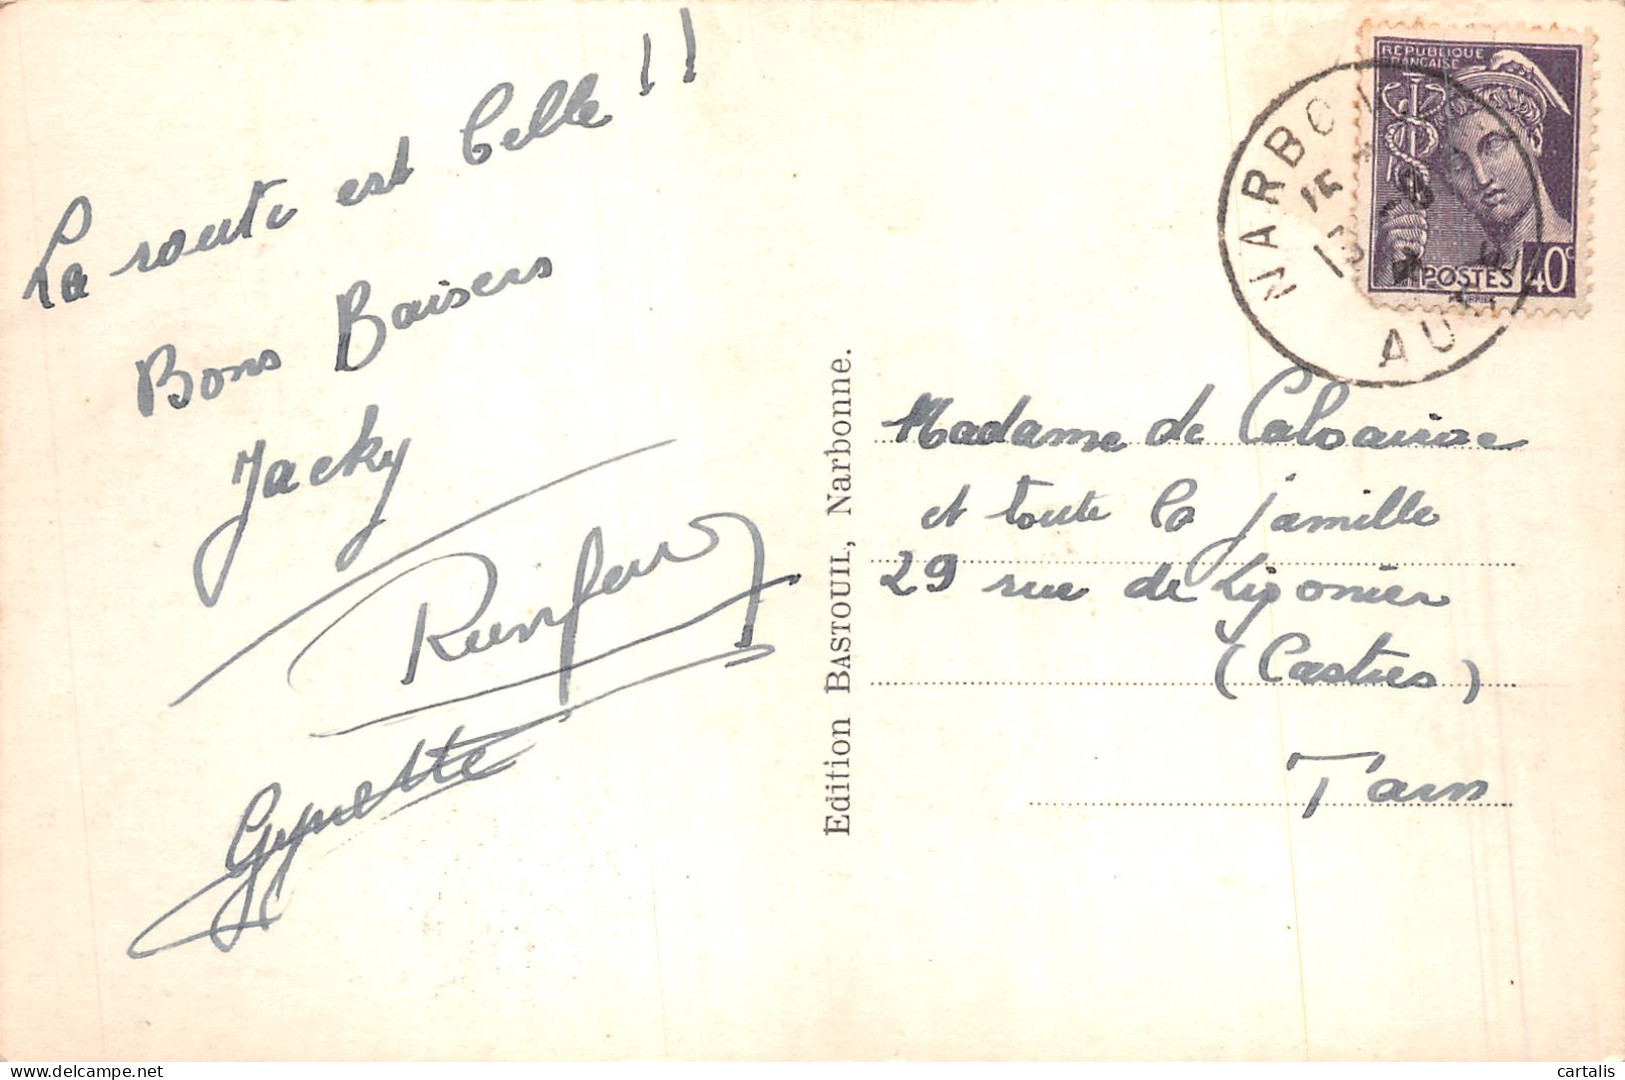 La route est belle !!
Bons Baisers
Jacky
Gynette
Edition BASTOUIL, Narbonne.
RÉPUBLIQUE
FRANÇAISE
POSTES 40c
NARBONNE
15
AU
Madame de
et toute la famille
29 rue de Ligonier
(Castres)
Tarn
cartalis